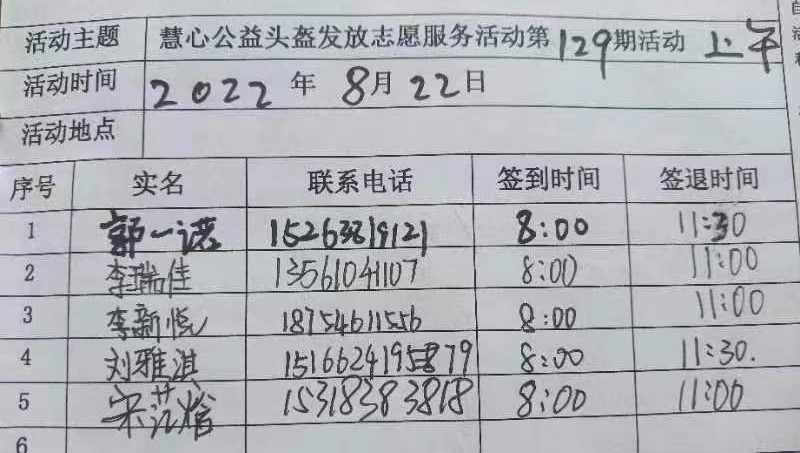 活动主题 慧心公益头盔发放志愿服务活动第129期活动 上午
活动时间 2022年8月22日
活动地点
序号 实名 联系电话 签到时间 签退时间
1 郭一诺 15263819121 8:00 11:30
2 李瑞佳 13561041107 8:00 11:00
3 李新悦 18754611556 8:00 11:00
4 刘雅淇 8:00 11:30.
5 15318383818 8:00 11:00
6